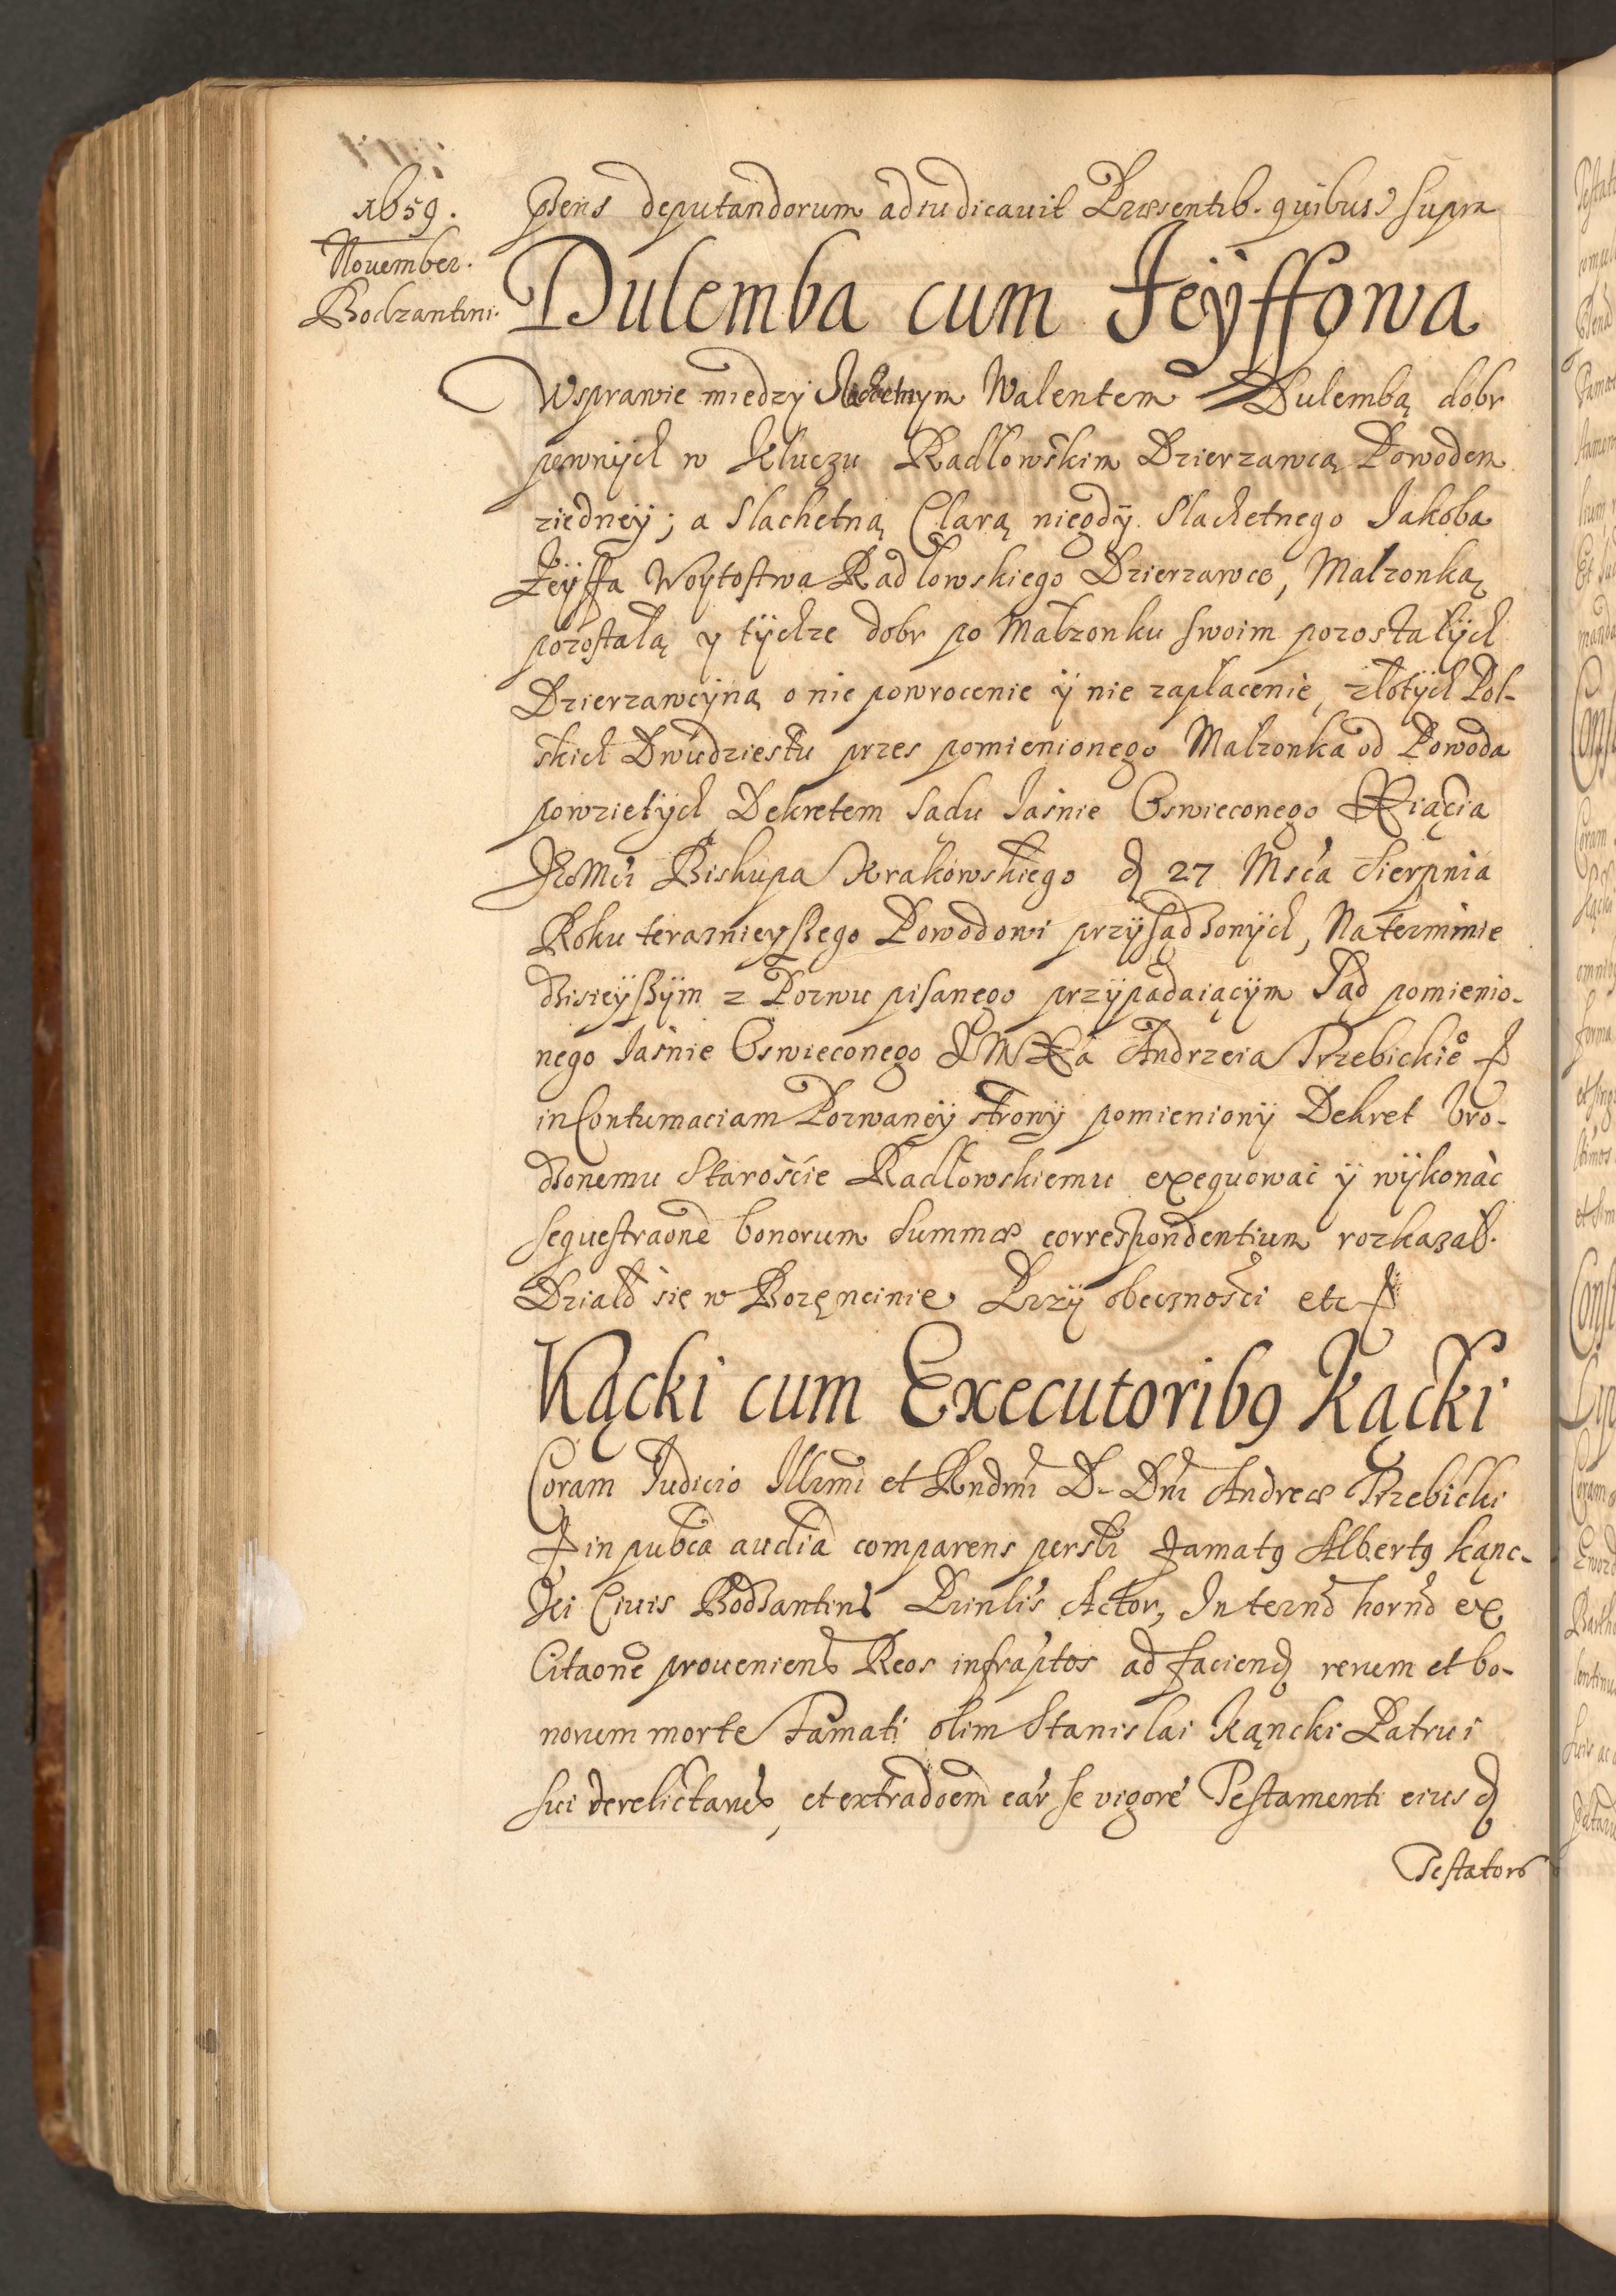 1659.
Nouember.
Bodzantini.
pñens deputandorum adiudicauit Præsentib. quibus supra
Dulemba cum Feÿffowa
Wsprawie miedzy Slachetnym Walentem Dulembą dobr
pewnÿch w Kluczu Radłowskim Dzierzawcą Powodem
ziedneÿ; a Slachetną Clarą niegdÿ Slachetnego Jakoba
Feÿffa Woytostwa Radłowskiego Dzierzawce, Malzonką
pozostałą y tÿchze dobr po Małzonku swoim pozostałÿch
Dzierzawcÿną o nie powrocenie ÿ nie zapłacenie, złotÿch Pol-
skich Dwudziestu przes pomienionego Malzonka od Powoda
powzietÿch Dekretem Sądu Jaśnie Oswieconego Xiązcia
Je͞o Mci Biskupa Krakowskiego d 27 Msca Sierpnia
Roku teraznieyszego Powodowi przÿsądzonÿch, Na terminie
dzisieÿszÿm z Pozwu pisanego przÿpadaiącÿm Sąd pomienio-
nego Jaśnie Oswieconego J M Xa Andrzeia Trzebickie͞o
in Contumaciam Pozwaneÿ stronÿ pomienionÿ Dekret Uro-
dzonemu Starośćie Radłowskiemu exequować ÿ wÿkonàć
sequestraone bonorum summæ correspondentium rozkazał.
Działo się w Borzęncinie Przÿ obecznośći etc
Kącki cum Executorib9 Kącki
Coram Judicio Illrmi et Rndmi D. Dni Andreæ Trzebicki
in pubca audia comparens persłr Famat9 Albert9 Kąnc-
ki Ciuis Bodzantins Prinlis Actor, In termo horno ex
Citaone proueniens Reos infraptos ad faciend rerum et bo-
norum morte Famati olim Stanislai Kąncki Patrui
sui derelictarum, et extradoem ear se vigore Testamenti eiusd
Testatoris